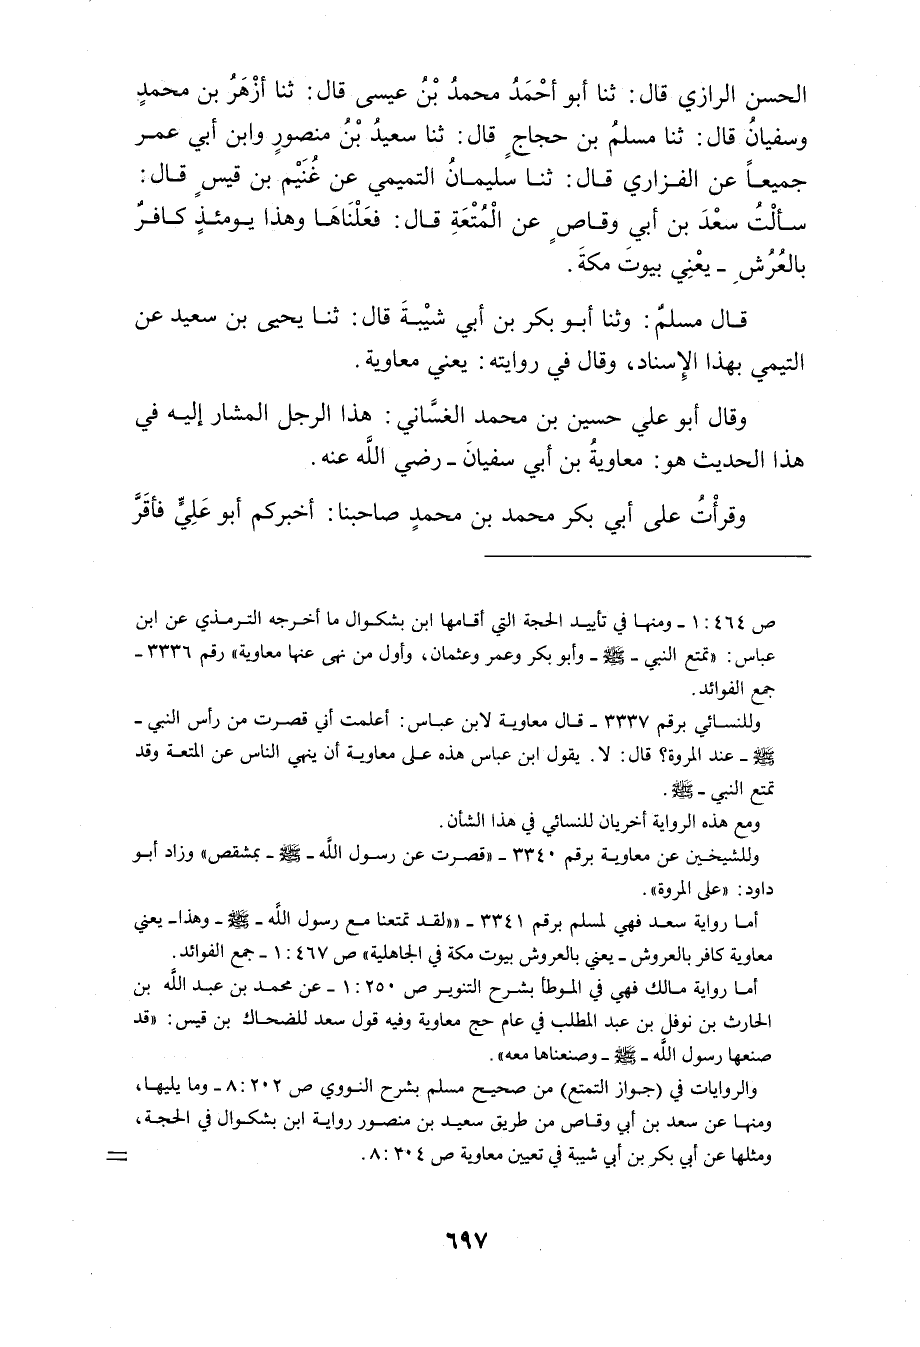 الحسن الرازي قال: ثنا أبو أحْمَدُ محمدُ بْنُ عيسى قال: ثنا أزْهَرُ بن محمدٍ
وسفيانُ قال: ثنا مسلمُ بن حجاجٍ قال: ثنا سعيدُ بْنُ منصورٍ وابن أبي عمر
جميعاً عن الفزاري قال: ثنا سليمانُ التميمي عن غُنَيْم بن قيسٍ قال:
سألْتُ سعْدَ بن أبي وقاصٍ عن الْمُتْعَةِ قال: فعَلْنَاهَا وهذا يومئذٍ كافرٌ
بالعُرُشِ - يعْنِي بيوتَ مكةَ.
قال مسلمٌ: وثنا أبو بكر بن أبي شيْبةَ قال: ثنا يحيى بن سعيد عن
التيمي بهذا الإِسناد، وقال في روايته: يعني معاوية.
وقال أبو علي حسين بن محمد الغسَّاني: هذا الرجل المشار إليه في
هذا الحديث هو: معاويةُ بن أبي سفيانَ - رضي اللَّه عنه.
وقرأْتُ على أبي بكر محمد بن محمدٍ صاحبنا: أخبركم أبو عَلِيٍّ فأقَرَّ
ص ٤٦٤: ١ - ومنها في تأييد الحجة التي أقامها ابن بشكوال ما أخرجه الترمذي عن ابن
عباس: «تمتع النبي - ﷺ - وأبو بكر وعمر وعثمان، وأول من نهى عنها معاوية» رقم ٣٣٣٦ -
جمع الفوائد.
وللنسائي برقم ٣٣٣٧ - قال معاوية لابن عباس: أعلمت أني قصرت من رأس النبي -
ﷺ - عند المروة؟ قال: لا. يقول ابن عباس هذه على معاوية أن ينهي الناس عن المتعة وقد
تمتع النبي - ﷺ.
ومع هذه الرواية أخريان للنسائي في هذا الشأن.
وللشيخين عن معاوية برقم ٣٣٤٠ - «قصرت عن رسول اللَّه - ﷺ - بمشقص» وزاد أبو
داود: «على المروة».
أما رواية سعد فهي لمسلم برقم ٣٣٤١ - ««لقد تمتعنا مع رسول اللَّه - ﷺ - وهذا- يعني
معاوية كافر بالعروش - يعني بالعروش بيوت مكة في الجاهلية» ص ٤٦٧: ١ - جمع الفوائد.
أما رواية مالك فهي في الموطأ بشرح التنوير ص ٢٥٠: ١ - عن محمد بن عبد اللَّه بن
الحارث بن نوفل بن عبد المطلب في عام حج معاوية وفيه قول سعد للضحاك بن قيس: «قد
صنعها رسول اللَّه - ﷺ - وصنعناها معه».
والروايات في (جواز التمتع) من صحيح مسلم بشرح النووي ص ٢٠٢: ٨ - وما يليها،
ومنها عن سعد بن أبي وقاص من طريق سعيد بن منصور رواية ابن بشكوال في الحجة،
ومثلها عن أبي بكر بن أبي شيبة في تعيين معاوية ص ٣٠٤: ٨. =
٦٩٧